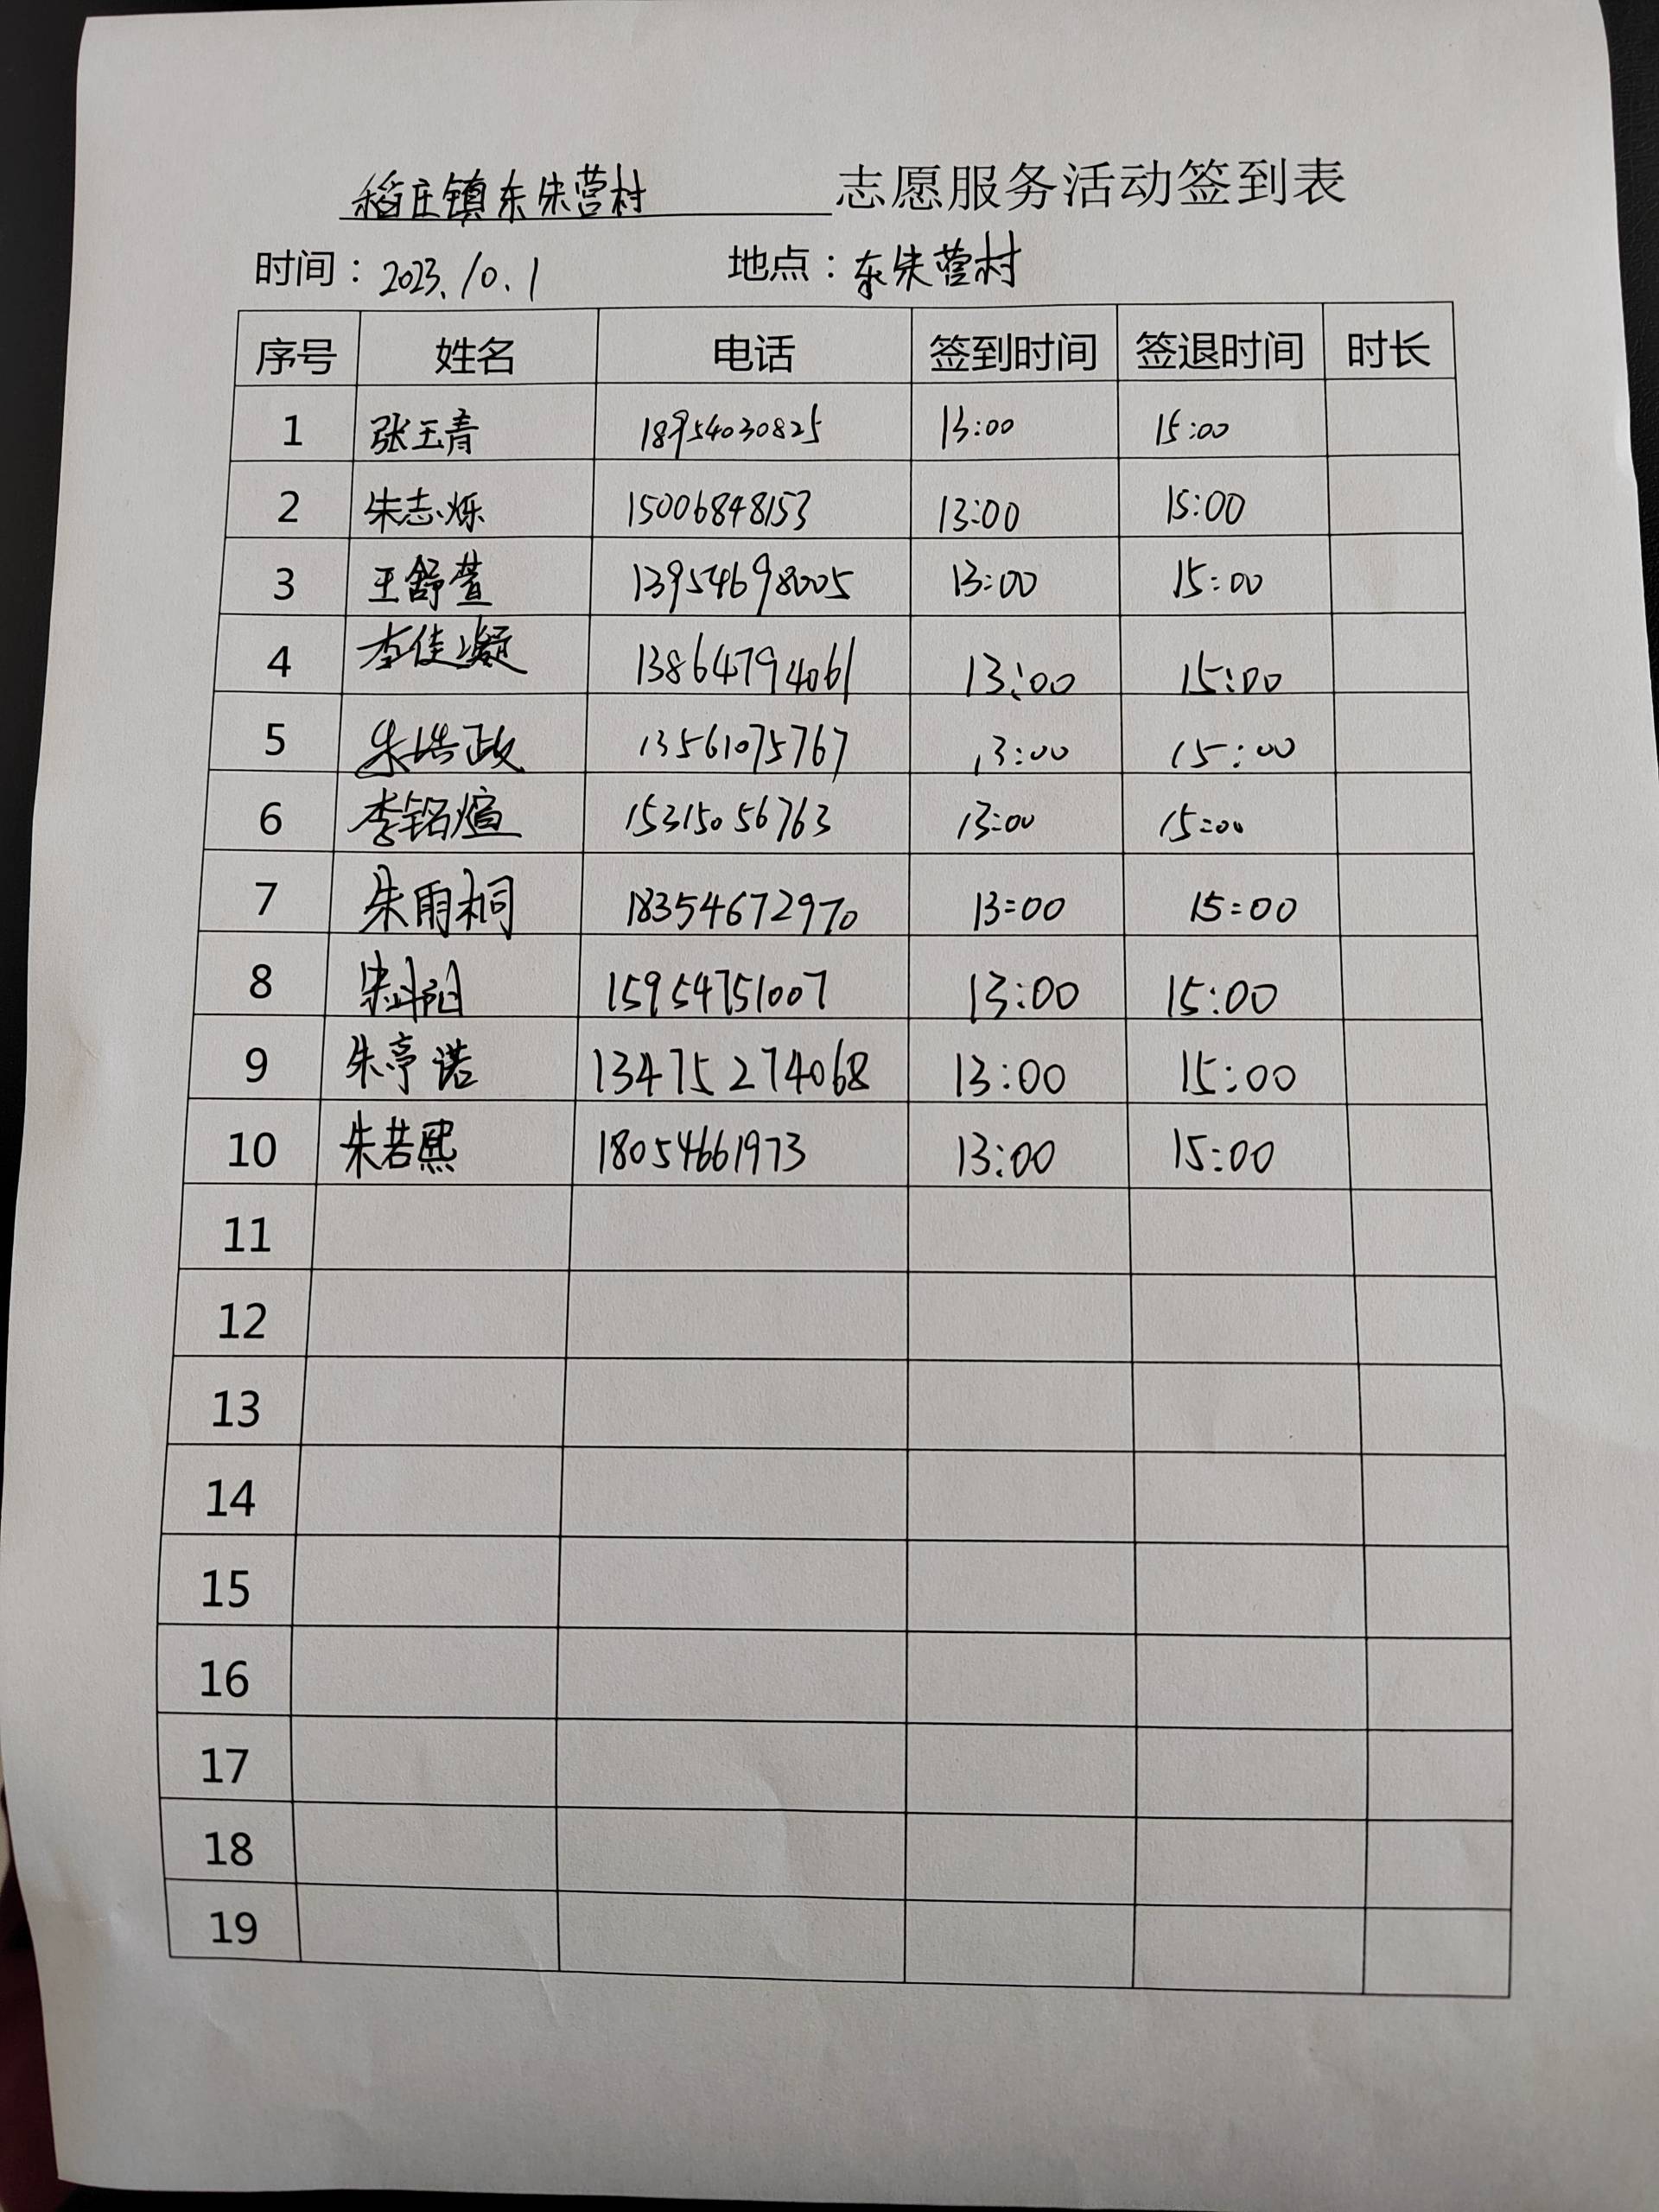 稻庄镇东朱营村 志愿服务活动签到表
时间：2023.10.1 地点：东朱营村
序号 姓名 电话 签到时间 签退时间 时长
1 张玉青 18954030825 13:00 15:00
2 朱志烁 15006848153 13:00 15:00
3 王舒萱 13954698005 13:00 15:00
4 李佳凝 13864794061 13:00 15:00
5 朱皓政 13561075767 13:00 15:00
6 李铭煊 15315056763 13:00 15:00
7 朱雨桐 18354672970 13:00 15:00
8 15954751007 13:00 15:00
9 朱亭诺 13475274068 13:00 15:00
10 朱若熙 18054661973 13:00 15:00
11
12
13
14
15
16
17
18
19